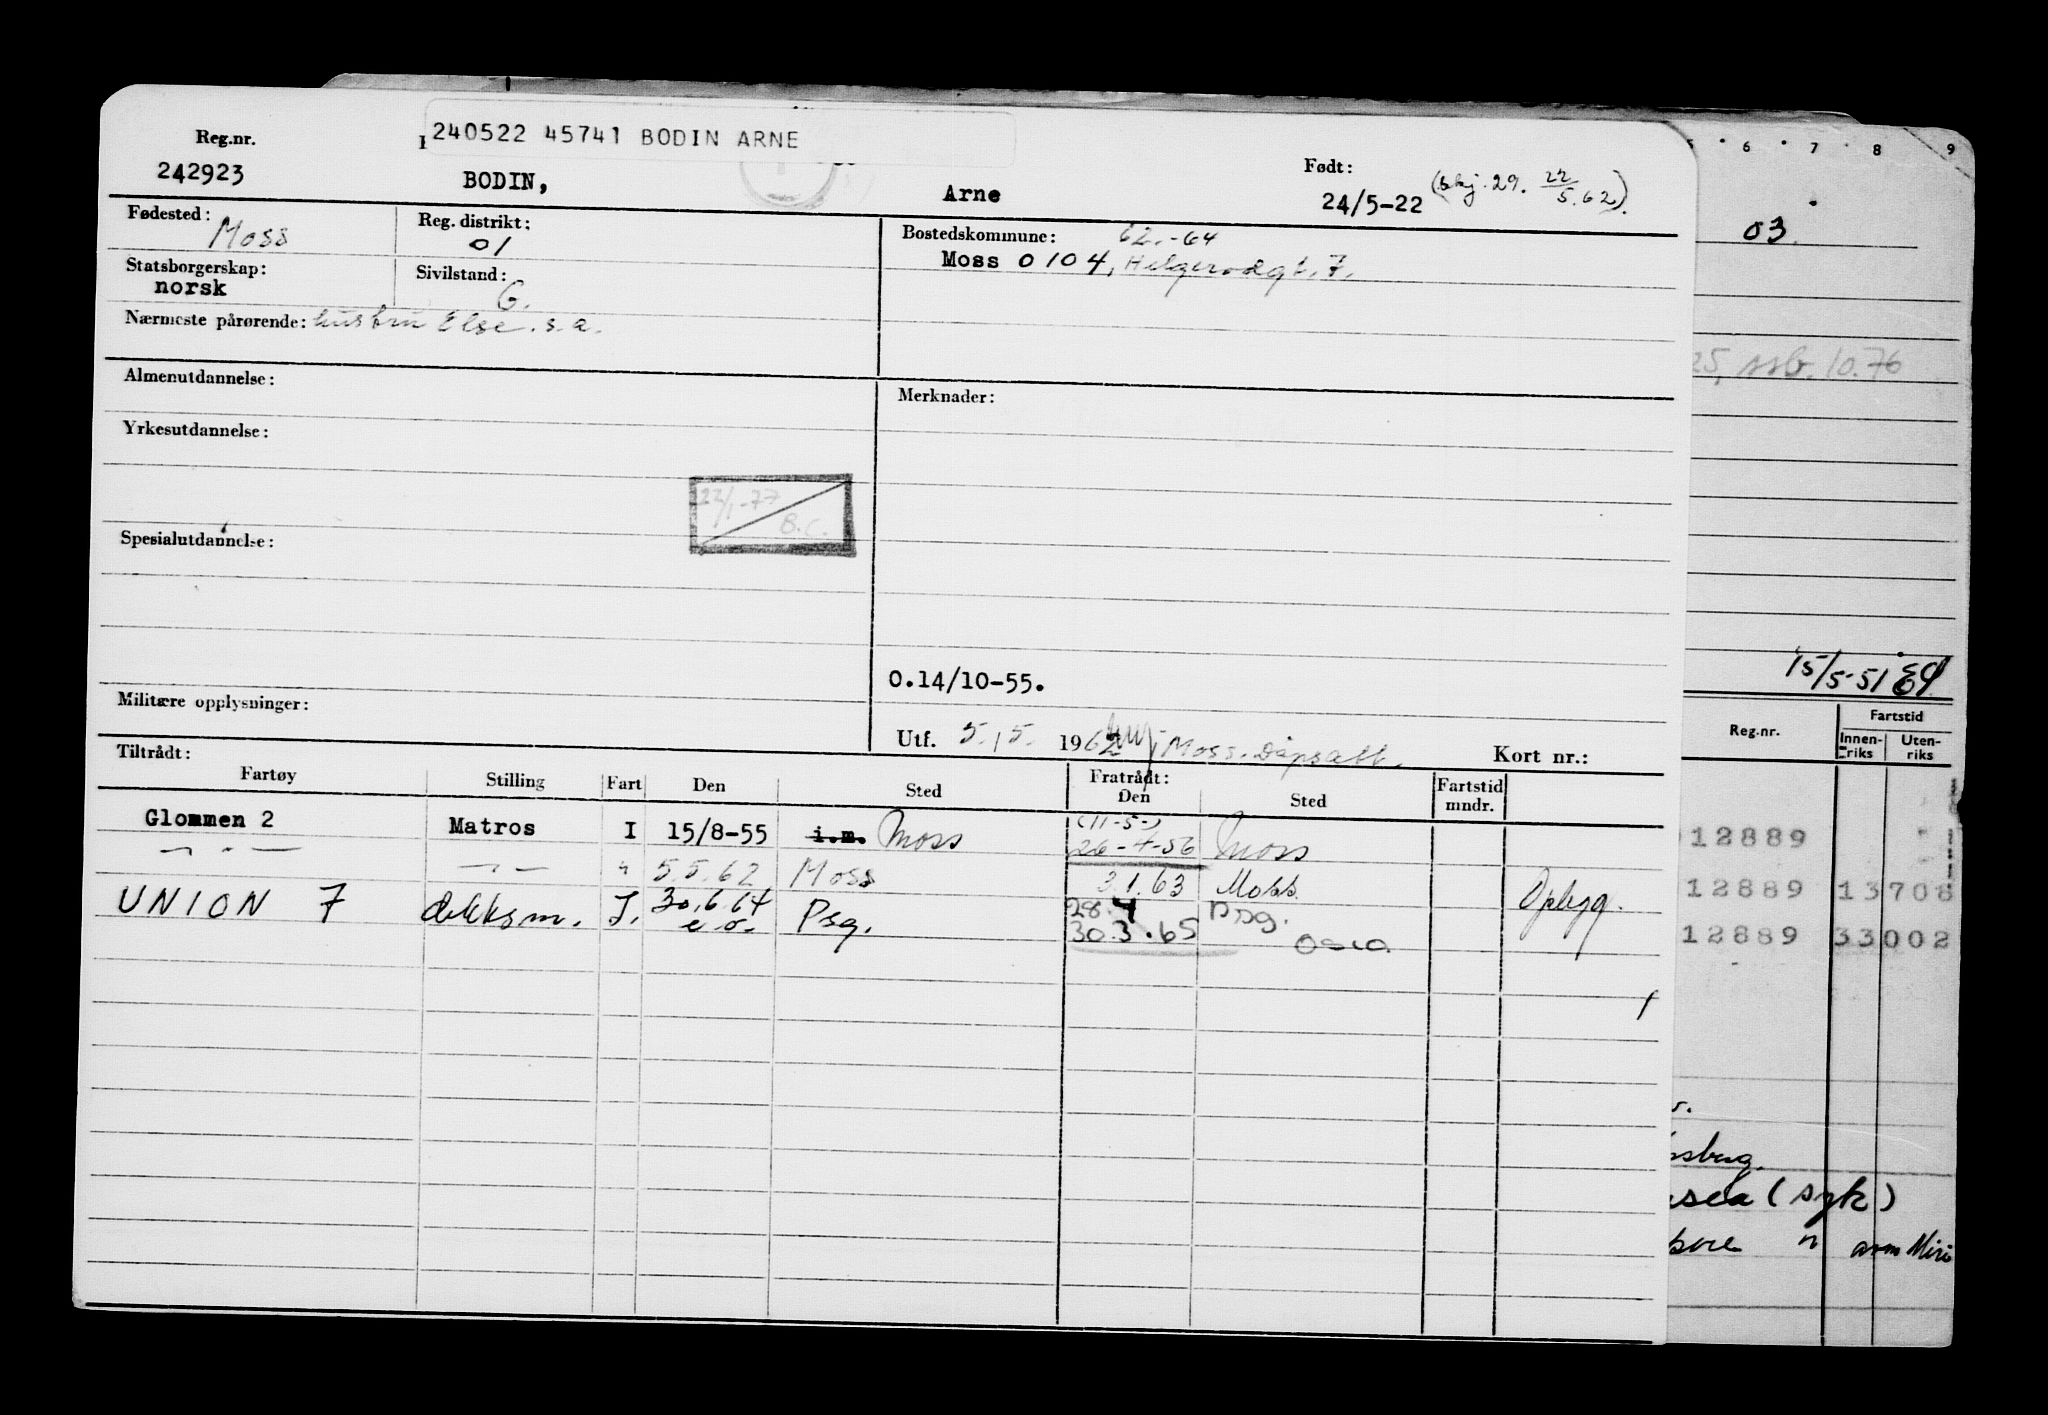 240522 45741 BODIN ARNE
Reg.nr.
242923
BODIN,
Arne
Født:
24/5-22
(bkj. 29. 22/5.62).
Fødested:
Moss
Reg. distrikt:
01
Statsborgerskap:
norsk
Sivilstand:
G.
Nærmeste pårørende: hustru Else. s.a.
Bostedskommune:
62.-64
Moss 0104, Helgerødgt. 7.
Almenutdannelse:
Yrkesutdannelse:
22/1-77
B.C.
Spesialutdannelse:
Militære opplysninger:
Merknader:
0.14/10-55.
Utf. 5.15. 1962 Moss.
Kort nr.:
Tiltrådt:
Fartøy
Stilling
Fart
Den
Sted
Fratrådt:
Den
Sted
Fartstid mndr.
Glommen 2 Matros I 15/8-55 i.m. Moss (11-5-) 26-4-56 Moss
— " — — " — " 5.5.62 Moss 3.1.63 Moss
UNION 7 dekksm. I. 30.6.64 e.o. Psg. 28.4 Psg. Opbygg.
30.3.65 Oslo
5 6 7 8 9
03.
25, ssb. 10.76
15/5-51
Reg.nr.
Fartstid
Innen-riks
Uten-riks
12889
12889 13708
12889 33002
(syk)
"